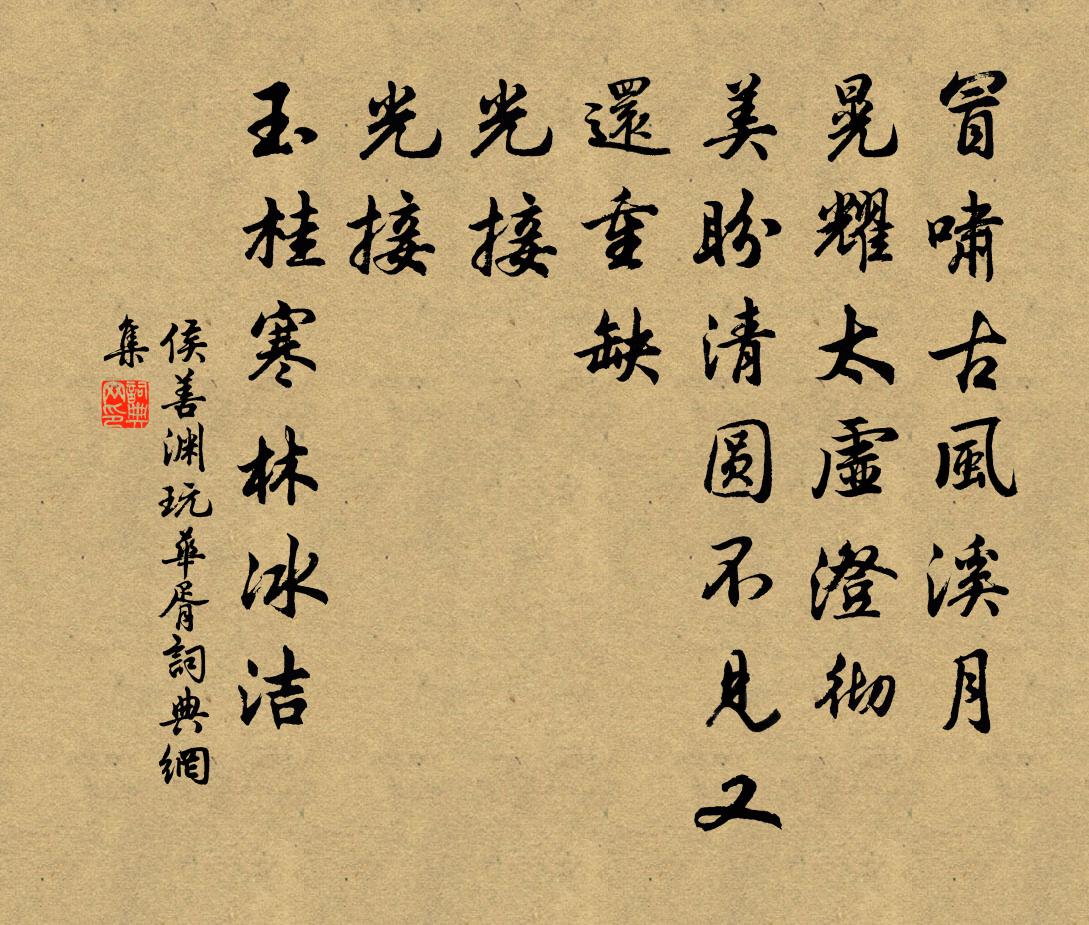 冐嘯古風溪月
晃耀太虛澄彻
美盼清圓不見又
還重缺
光接
光接
玉桂寒林冰洁
侯善渊玩華胥詞典網
集
詞典网印